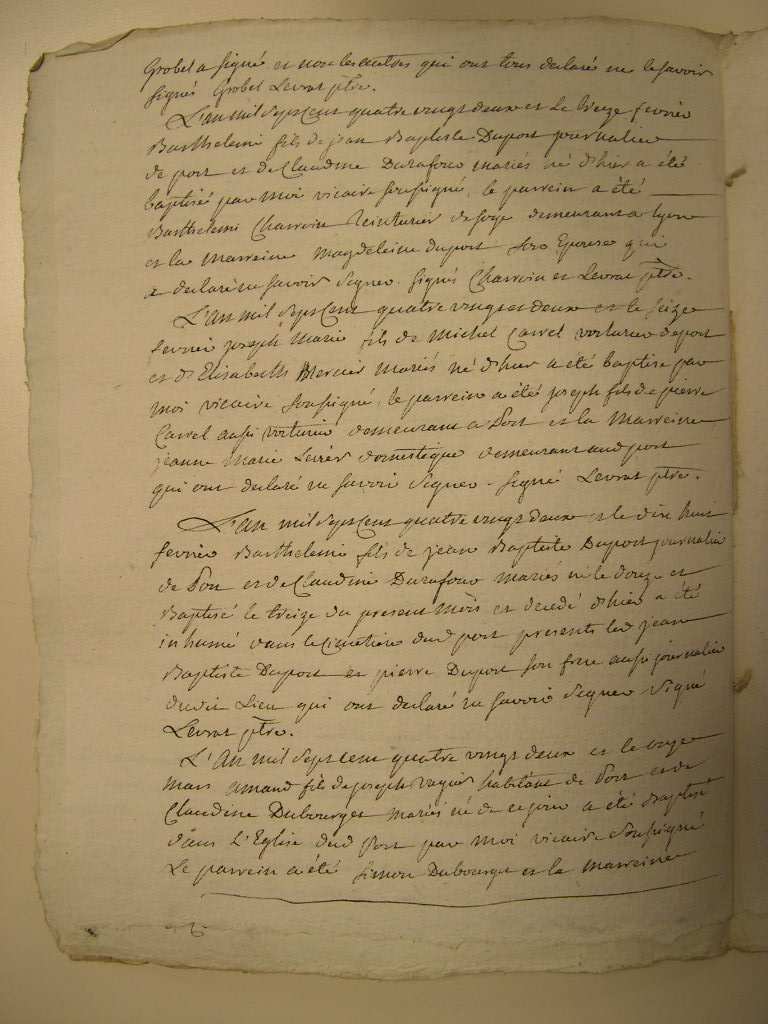 Grobel a signé et non les autres qui ont tous declarés ne le savoir
signés Grobel Levrat ptre.
L'an mil sept cent quatre vingt deux et le treize fevrier
Barthelemi fils de jean Baptiste Duport journalier
de port et de Claudine Durafour mariés né d'hier a été
baptisé par moi vicaire soussigné, le parrein a été
Barthelemi Charvin teinturier de soye demeurant a lyon
et la marreine Magdeleine duport son Epouse qui
a declaré ne savoir signer. signés Charvin et Levrat ptre.
L'an mil sept Cent quatre vingt et deux et le seize
fevrier joseph Marie fils de Michel Carrel voiturier de port
et d'Elisabeth Mercier Mariés né d'hier a été baptisé par
moi vicaire soussigné, le parrein a été joseph fils de pierre
Carrel aussi voiturier demeurant a Port et la Marreine
jeanne Marie domestique demeurant aud port
qui ont declaré ne savoir signer. signé Levrat ptre.
L'an mil sept Cent quatre vingt deux et le dix huit
fevrier Barthelemi fils de jean Baptiste Duport journalier
de Port et de Claudine Durafour mariés né le douze et
Baptisé le treize du present mois et decedé d'hier a été
inhumé dans le Cimetiere dud port presents led jean
Baptiste Duport et pierre Duport son frere aussi journalier
dudit Lieu qui ont declaré ne savoir signer signé
Levrat ptre.
L'An mil sept cent quatre vingt deux et le onze
mars amand fils de joseph habitant de Port et de
Claudine Dubourget mariés né de ce jour a été Baptisé
dans L'Eglise dud Port par moi vicaire soussigné
Le parrein a été Simon Dubourget et la marreine